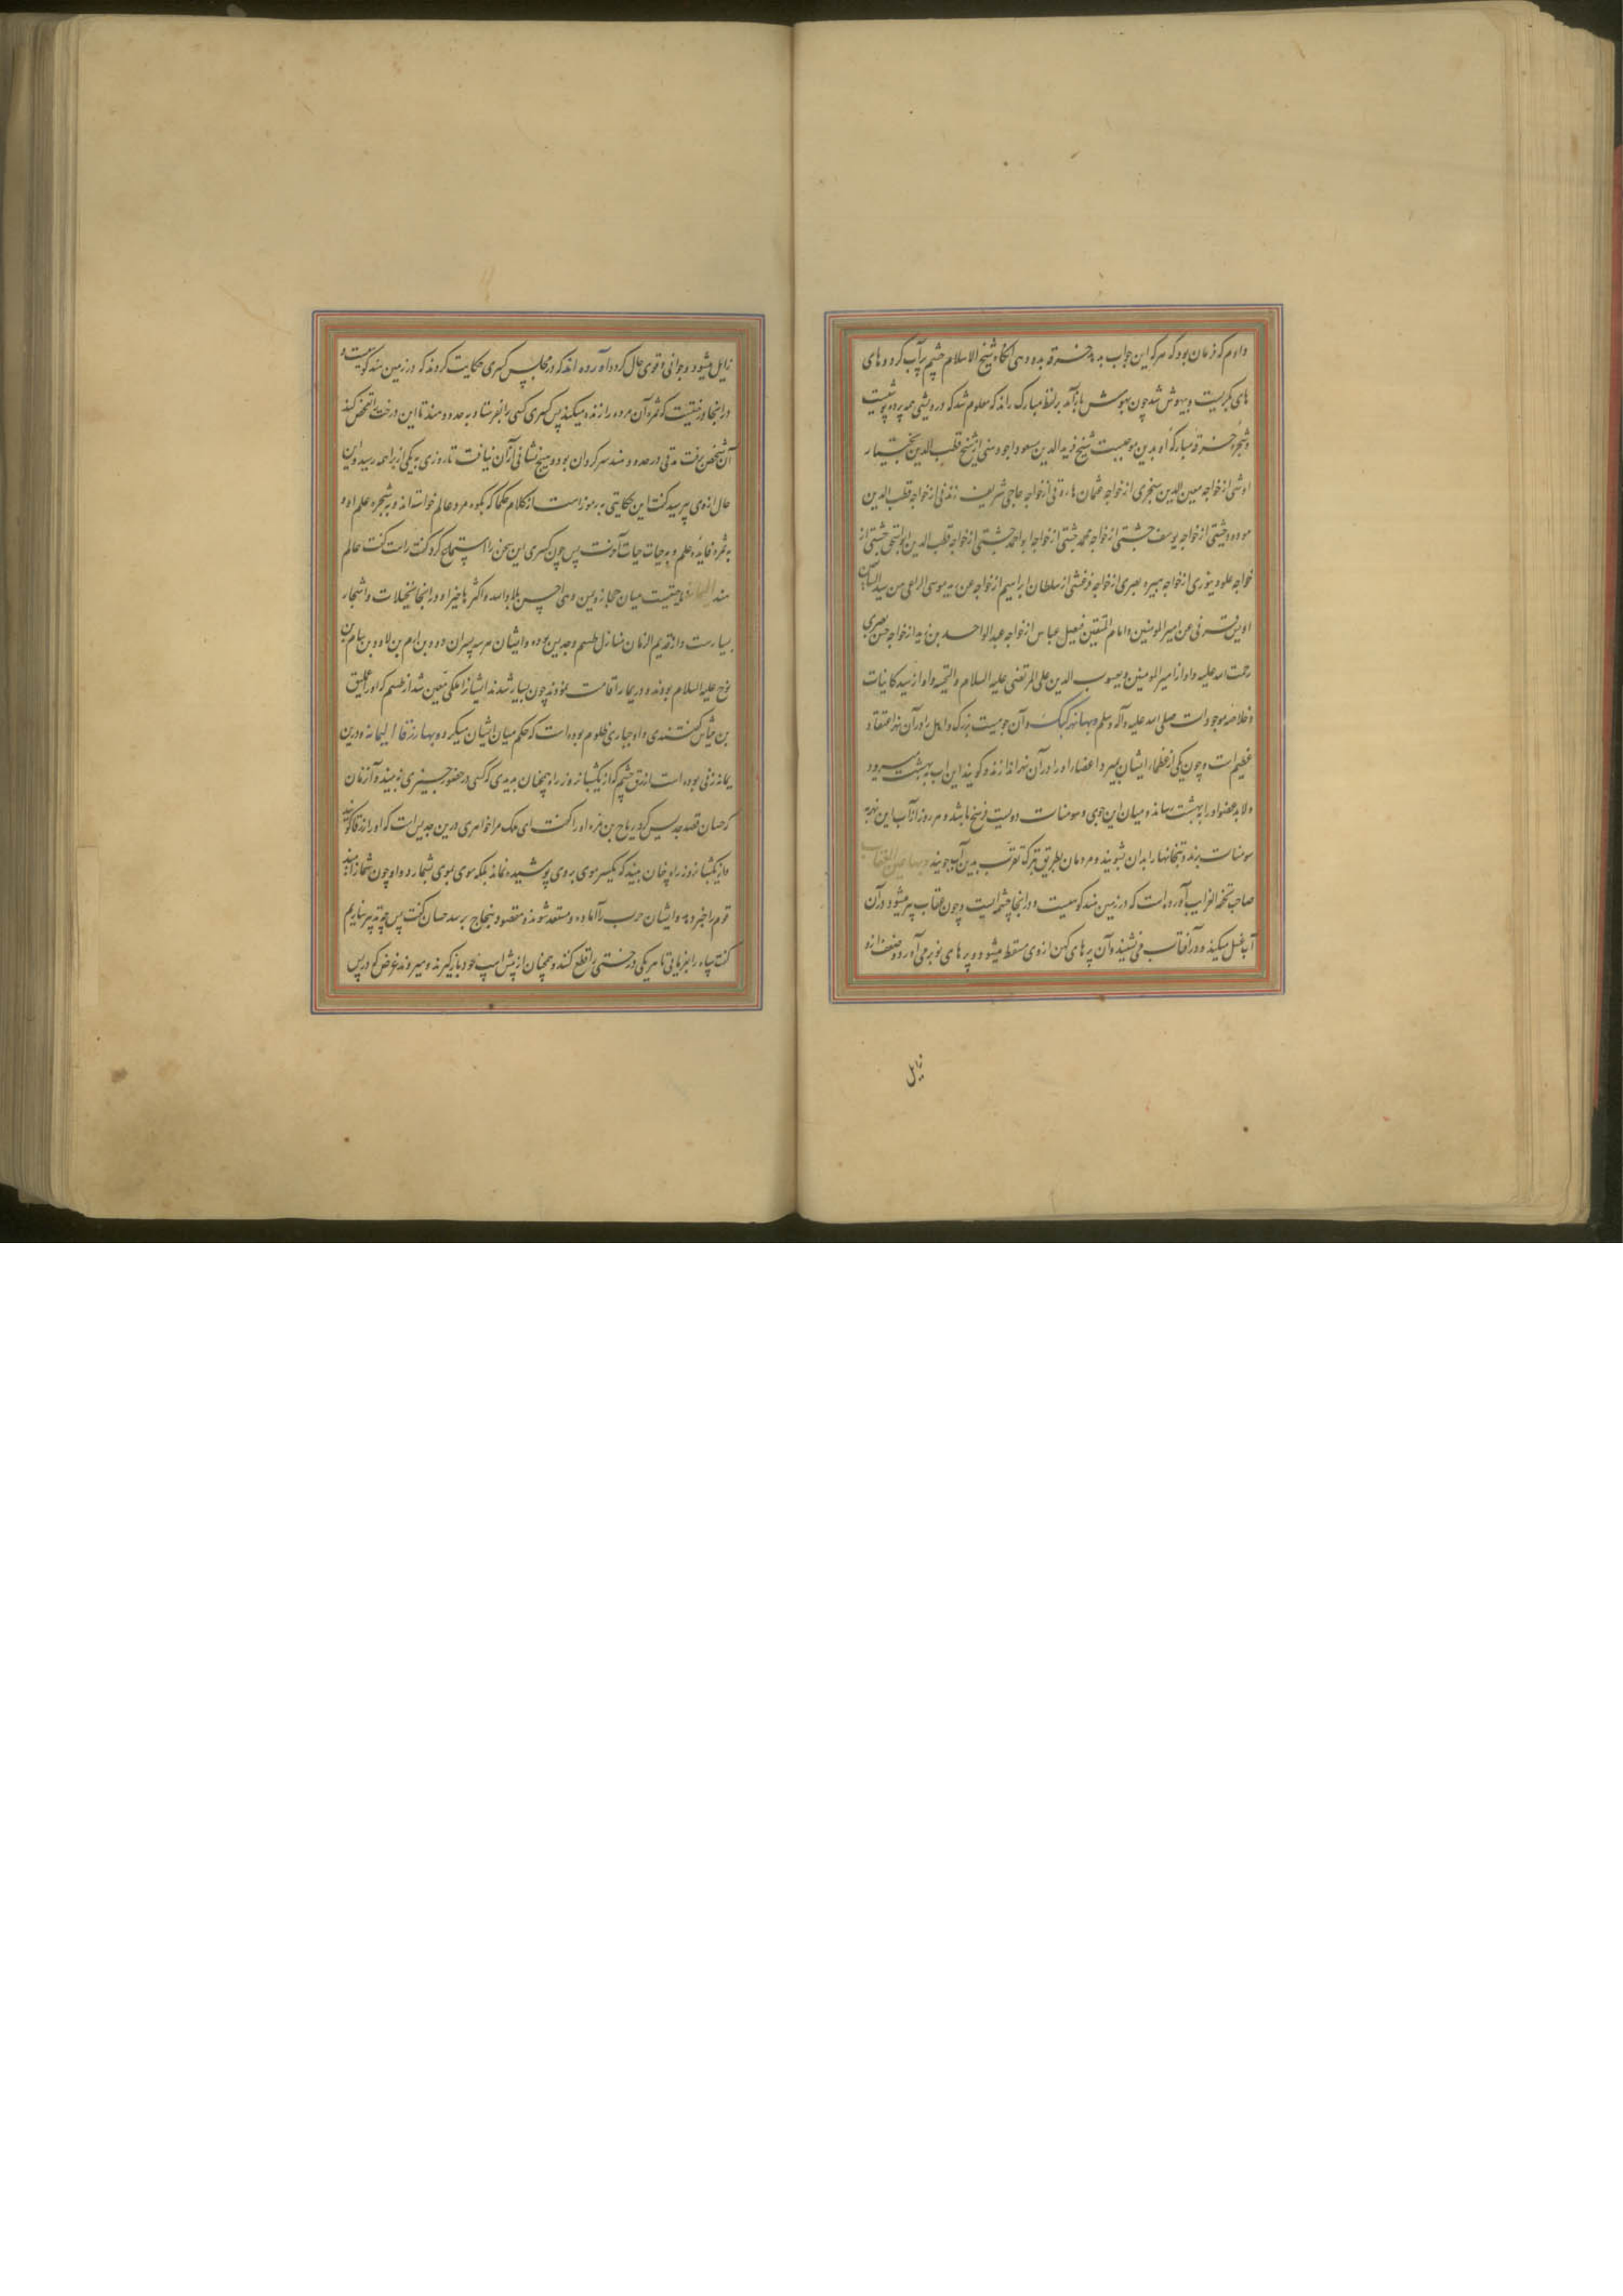 دادم که فرمان بود که هر که این جواب بدهد خرقه بدو دهی آنگاه شیخ الاسلام چشم پر آب کرد و های
های بگریست و بیهوش شد چون بهوش باز آمد بر لفظ مبارک راند که معلوم شد که درویشی همه پرده پوشیست
و شجره خرقه مبارکه او بدین موجبست شیخ فرید الدین مسعود اجودهنی از شیخ قطب الدین بختیار
اوشی از خواجه معین الدین سنجری از خواجه عثمان هارونی از خواجه حاجی شریف زندنی از خواجه قطب الدین
مودود چشتی از خواجه یوسف چشتی از خواجه محمد چشتی از خواجه ابو احمد چشتی از خواجه قطب الدین ابو اسحق چشتی از
خواجه علو دینوری از خواجه هبیره بصری از خواجه مرعشی از سلطان ابراهیم از خواجه عن موسی الراعی من سید التابعین
اویس قرنی عن امیر المومنین و امام المتقین فضیل عیاض از خواجه عبد الواحد بن زید از خواجه حسن بصری
رحمت الله علیه و او از امیر المومنین و یعسوب الدین علی المرتضی علیه السلام و التحیه و او از سید کاینات
و خلاصه موجودات صلی الله علیه و آله و سلم و بها نهر کنک و آن جویست بزرک و اهل را در آن نهر اعتقاد
عظیم است و چون یکی از عظماء ایشان بمیرد اعضاء او را در آن نهر اندازند و گویند این آب بهشت میرود
و لابد عضو او را به بهشت رساند و میان این جوی و سومنات دویست فرسخ باشد و هر روز از آب این نهر به
سومنات برند و بتخانها را بدان بشویند و مردمان بطریق تبرک تقرب بدین آب جویند و بها عین العقاب
صاحب تحفه الغرایب آورده است که در زمین هند کوهیست و در آنجا چشمه ایست و چون عقاب پیر میشود در آن
آب غسل میکند و در آفتاب می نشیند و آن پرهای کهن از وی سقط میشود و پرهای نو بر می آورد و ضعف از و
زایل
زایل میشود و جوانی و قوی حال کردد آورده اند که در مجلس کسری حکایت کردند که در زمین هند کوهیست و
در آنجا درختیست که ثمره آن مرده را زنده میکند پس کسری کسی را بفرستاد به حدود هند تا این درخت تفحص کند
آن شخص برفت مدتی در حدود هند سرکردان بود و هیچ نشانی از آن نیافت تا روزی به یکی از براهمه رسید و این
حال از وی پرسید کفت این حکایتی به رموز است از کلام حکما که بکوه مرد عالم خواسته اند و به شجره علم او و
به ثمره فایده علم و به حیات حیات آخرت پس چون کسری این سخن را استماع کرد کفت راست کفت عالم
هند الیمامه ناحیتیست میان حجاز و یمن و هی احسن بلاد الله و اکثرها خیرا و در آنجا نخیلات و اشجار
بسیارست و از قدیم الزمان منازل طسم و جدیس بوده و ایشان هر سه پسران دو بن ارم بن لاود بن سام بن
نوح علیه السلام بودند و در یمامه اقامت نمودند چون بسیار شدند ایشانرا ملکی معین شد از طسم که او را عملیق
بن کفتندی و او جباری ظلوم بوده است که حکم میان ایشان میکرد و بها زرقا الیمامه و درین
یمامه زنی بوده است ازرق چشم که از یکشبانه روز راه چنان بدیدی که کسی در حضور چیزی ببیند و آن زمان
که حسان قصد جدیس کرد ریاح بن مره او را کفت ای ملک مرا خواهری درین جدیس است که او را زرقا کویند
و از یکشبانه روز راه چنان بیند که یکسر موی بر وی پوشیده نماند بلکه موی بموی شمارد و او چون شما را بیند
قوم را خبر دهد و ایشان حرب را آماده و مستعد شوند و مقصود بنجاح نرسد حسان کفت پس چه تدبیر سازیم
کفت سپاه را بفرمای تا هر یکی درختی را قطع کنند و همچنان از پیش اسپ خود باز گیرند و میروند غرض که در پس